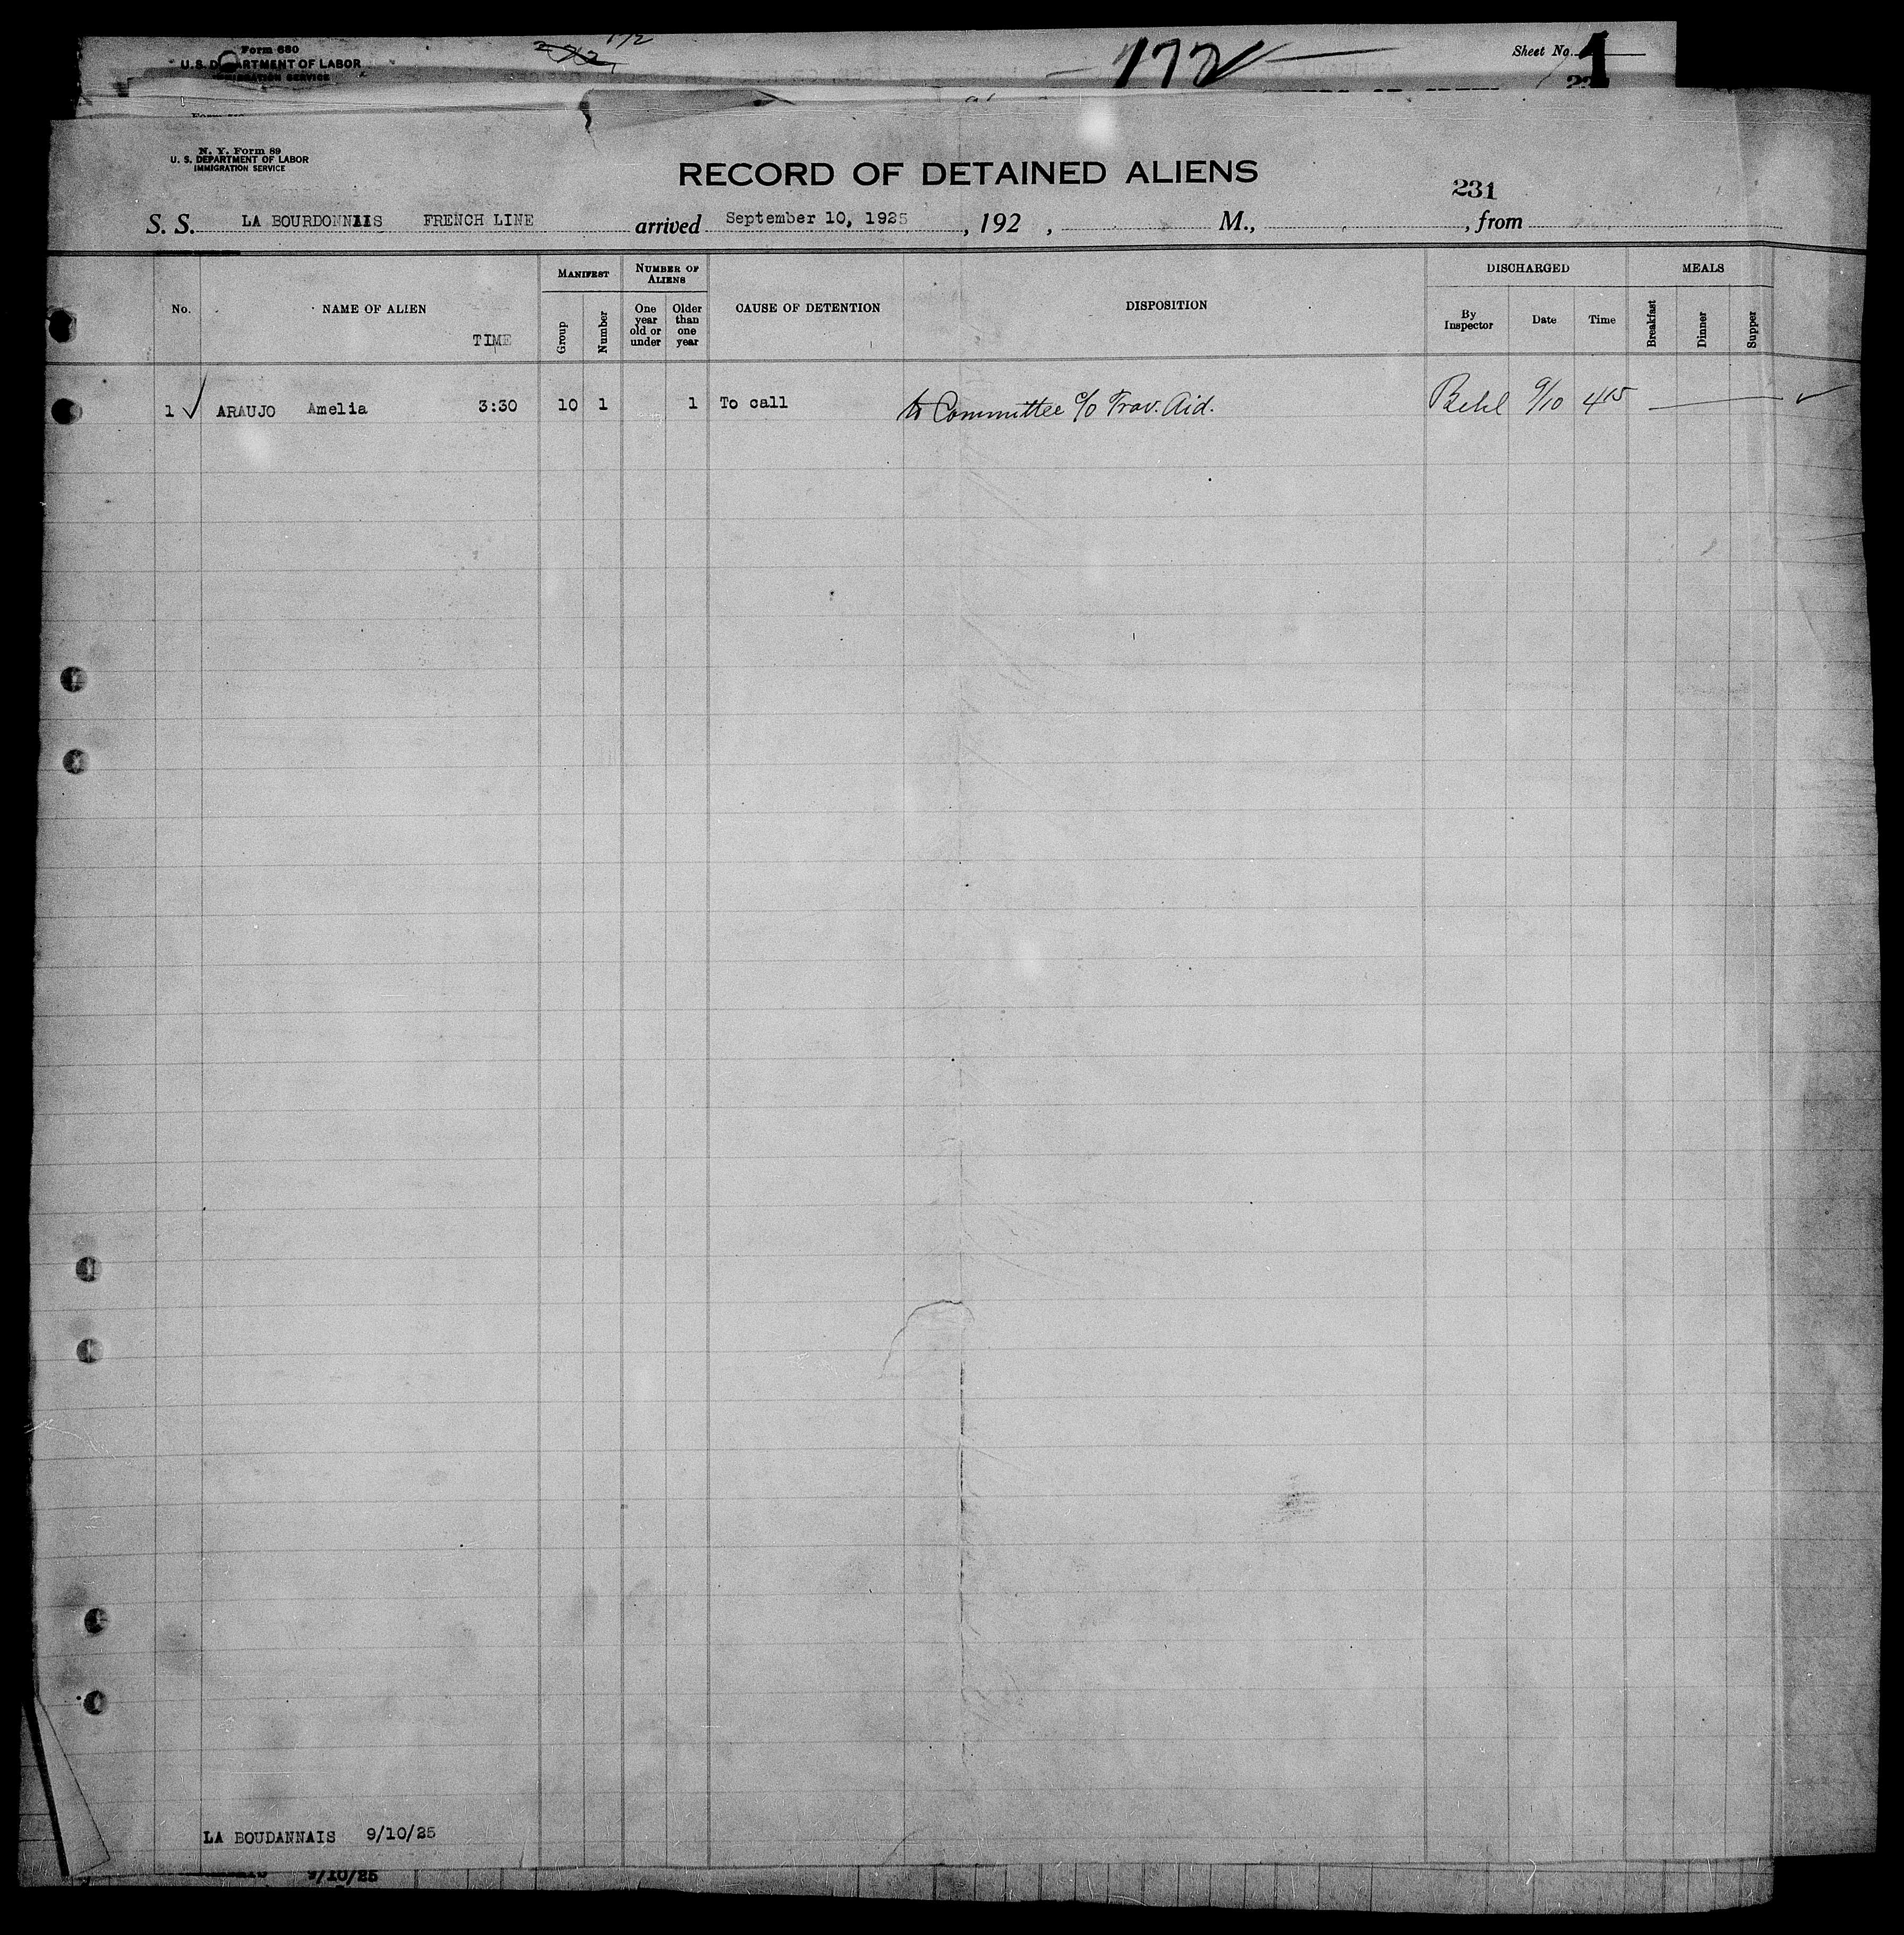 Form 680
U. S. DEPARTMENT OF LABOR
IMMIGRATION SERVICE
172
Sheet No. 1
N. Y. Form 89
U. S. DEPARTMENT OF LABOR
IMMIGRATION SERVICE
RECORD OF DETAINED ALIENS
231
S. S. LA BOURDONNAIS FRENCH LINE arrived September 10, 1925, 192 , M., , from
No.
NAME OF ALIEN
TIME
MANIFEST
Group
Number
NUMBER OF ALIENS
One year old or under
Older than one year
CAUSE OF DETENTION
DISPOSITION
DISCHARGED
By Inspector
Date
Time
MEALS
Breakfast
Dinner
Supper
1 ✓ ARAUJO Amelia 3:30 10 1 1 To call to Committee c/o Trav. Aid. 9/10 4 15 ✓
LA BOUDANNAIS 9/10/25
9/10/25